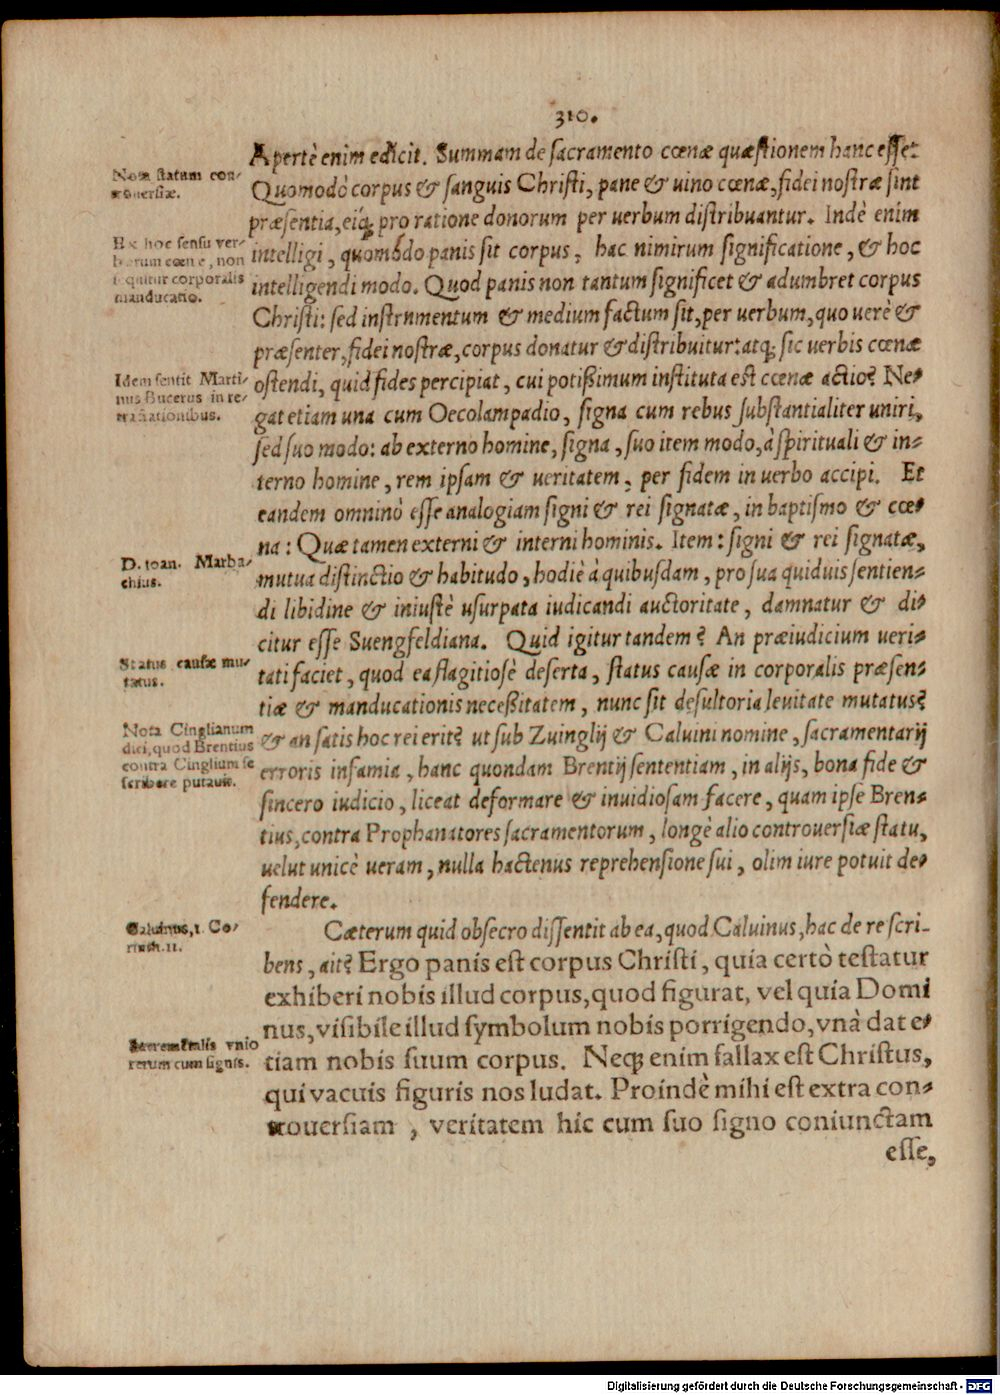 310.
Apertè enim edicit. Summam de sacramento cœnæ quæstionem hanc esse:
Quomodò corpus & sanguis Christi, pane & uino cœnæ, fidei nostræ sint
præsentia, eiq́; pro ratione donorum per uerbum distribuantur. Indè enim
intelligi, quomodo panis sit corpus, hac nimirum significatione, & hoc
intelligendi modo. Quod panis non tantum significet & adumbret corpus
Christi: sed instrnmentum & medium factum sit, per uerbum, quo uerè &
præsenter, fidei nostræ, corpus donatur & distribuitur: atq; sic uerbis cœnæ
ostendi, quid fides percipiat, cui potißimum instituta est cœnæ actio? Ne-
gat etiam una cum Oecolampadio, signa cum rebus substantialiter uniri,
sed suo modo: ab externo homine, signa, suo item modo, à spirituali & in-
terno homine, rem ipsam & ueritatem, per fidem in uerbo accipi. Et
eandem omninò esse analogiam signi & rei signatæ, in baptismo & cœ-
na: Quæ tamen externi & interni hominis. Item: signi & rei signatæ,
mutua distinctio & habitudo, hodiè à quibusdam, pro sua quiduis sentien-
di libidine & iniustè usurpata iudicandi auctoritate, damnatur & di-
citur esse Suengfeldiana. Quid igitur tandem? An præiudicium ueri-
tati faciet, quod ea flagitiosè deserta, status causæ in corporalis præsen-
tiæ & manducationis neceßitatem, nunc sit desultoria leuitate mutatus?
& an satis hoc rei erit? ut sub Zuinglij & Caluini nomine, sacramentarij
erroris infamia, hanc quondam Brentij sententiam, in alijs, bona fide &
sincero iudicio, liceat deformare & inuidiosam facere, quam ipse Bren-
tius, contra Prophanatores sacramentorum, longè alio controuersiæ statu,
uelut unicè ueram, nulla hactenus reprehensione sui, olim iure potuit de-
fendere.
Cæterum quid obsecro dissentit ab ea, quod Caluinus, hac de re scri-
bens, ait? Ergo panis est corpus Christi, quia certò testatur
exhiberi nobis illud corpus, quod figurat, vel quia Domi
nus, visibile illud symbolum nobis porrigendo, vnà dat e-
tiam nobis suum corpus. Neq; enim fallax est Christus,
qui vacuis figuris nos ludat. Proindè mihi est extra con-
trouersiam, veritatem hic cum suo signo coniunctam
esse,
Nota statum con-
trouersiæ.
Ex hoc sensu ver-
borum cœnæ, non
sequitur corporalis
manducatio.
Idem sentit Marti-
nus Bucerus in re-
tractationibus.
D. Ioan. Marba-
chius.
Status causæ mu-
tatus.
Nota Cinglianum
dici, quod Brentius
contra Cinglium se
scribere putauit.
Caluinus, 1. Co-
rinth. 11.
Sacramentalis vnio
rerum cum signis.
Digitalisierung gefördert durch die Deutsche Forschungsgemeinschaft - DFG